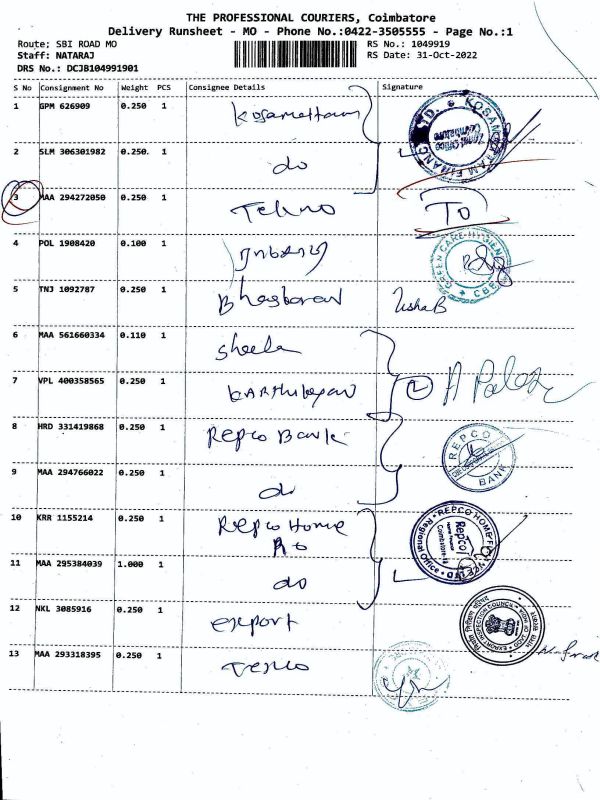 THE PROFESSIONAL COURIERS, Coimbatore
Delivery Runsheet - MO - Phone No.:0422-3505555 - Page No.:1
Route: SBI ROAD MO RS No.: 1049919
Staff: NATARAJ RS Date: 31-Oct-2022
DRS No.: DCJB104991901
S No Consignment No Weight PCS Consignee Details Signature
1 GPM 626909 0.250 1
2 SLM 306301982 0.250. 1 do
3 MAA 294272050 0.250 1 Tekno To
4 POL 1908420 0.100 1
GREEN CARE HYGIENE CBE
5 TNJ 1092787 0.250 1 Bhasharan Usha B
6 MAA 561660334 0.110 1 Sheela
7 VPL 400358565 0.250 1 KARthikeyan 2
8 HRD 331419868 0.250 1 Repco Bank
REPCO BANK
9 MAA 294766022 0.250 1 do
10 KRR 1155214 0.250 1 Repco Home
REPCO HOME
Repco
Regional Office
11 MAA 295384039 1.000 1 do
12 NKL 3085916 0.250 1 export
EXPORT INSPECTION COUNCIL
13 MAA 293318395 0.250 1